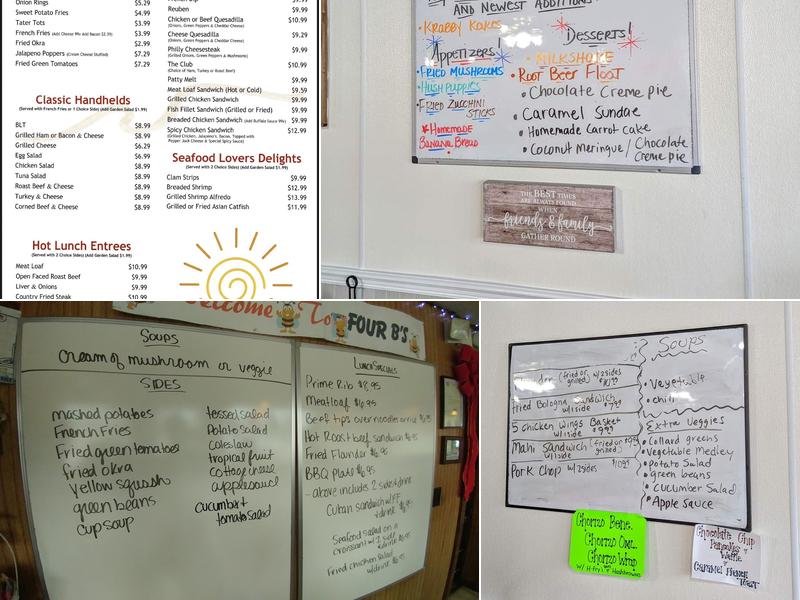 Onion Rings $5.29
Sweet Potato Fries $4.99
Tater Tots $3.99
French Fries (Add Cheese Mix Add Bacon $2.39) $3.99
Fried Okra $2.99
Jalapeno Poppers (Cream Cheese Stuffed) $7.29
Fried Green Tomatoes $7.29
Classic Handhelds
(Served with French Fries or 1 Choice Sides) (Add Garden Salad $1.99)
BLT $8.99
Grilled Ham or Bacon & Cheese $8.99
Grilled Cheese $6.29
Egg Salad $6.99
Chicken Salad $8.99
Tuna Salad $8.99
Roast Beef & Cheese $8.99
Turkey & Cheese $8.99
Corned Beef & Cheese $8.99
Hot Lunch Entrees
(Served with 2 Choice Sides) (Add Garden Salad $1.99)
Meat Loaf $10.99
Open Faced Roast Beef $9.99
Liver & Onions $9.99
Country Fried Steak $10.99
Reuben $9.99
Chicken or Beef Quesadilla $10.99
(Onions, Green Peppers & Cheddar Cheese)
Cheese Quesadilla $9.29
(Onions, Green Peppers & Cheddar Cheese)
Philly Cheesesteak $9.99
(Grilled Onions, Green Peppers & Mushrooms)
The Club $10.99
(Choice of Ham, Turkey or Roast Beef)
Patty Melt $9.99
Meat Loaf Sandwich (Hot or Cold) $9.59
Grilled Chicken Sandwich $9.99
Fish Fillet Sandwich (Grilled or Fried) $9.99
Breaded Chicken Sandwich (Add Buffalo Sauce 99c) $9.99
Spicy Chicken Sandwich $12.99
(Grilled Chicken, Jalapeno's, Bacon, Topped with
Pepper Jack Cheese & Special Spicy Sauce)
Seafood Lovers Delights
(Served with 2 Choice Sides) (Add Garden Salad $1.99)
Clam Strips $9.99
Breaded Shrimp $12.99
Grilled Shrimp Alfredo $13.99
Grilled or Fried Asian Catfish $11.99
AND NEWEST ADDITIONS
• KRABBY KAKES
Appetizers!
• FRIED MUSHROOMS
• HUSH PUPPIES
• FRIED ZUCCHINI
STICKS
HOMEMADE
BANANA BREAD
Desserts!
• MILKSHAKE
• ROOT BEER FLOAT
• Chocolate Creme pie
• Caramel Sundae
• Homemade Carrot cake
• Coconut Meringue / Chocolate
Creme pie
THE BEST TIMES
ARE ALWAYS FOUND
WHEN
friends & family
GATHER ROUND
Welcome To FOUR B'S
SOUPS
cream of mushroom or veggie
SIDES
mashed potatoes
French Fries
Fried green tomatoes
fried okra
yellow squash
green beans
cup soup
tossed salad
Potato salad
coleslaw
tropical fruit
cottage cheese
applesauce
cucumber +
tomato salad
Lunch Specials
Prime Rib $8.95
Meatloaf $6.95
Beef tips over noodles or rice
Hot Roast beef sandwich
Fried Flounder $6.95
BBQ Plate $6.95
- above includes 2 sides + drink
Cuban sandwich w/ FF
+ drink
Seafood salad on a
croissant w/ 1 side
+ drink
Fried chicken salad
w/ drink
(fried or grilled) w/2 sides $10.99
Fried Bologna Sandwich
w/1 side $7.99
5 chicken wings Basket
w/1 side $9.99
Mahi Sandwich (fried or grilled)
w/1 side
Pork Chop w/ 2 sides $10.99
Soups
• Vegetable
• chili
Extra Veggies
• Collard greens
• Vegetable Medley
• Potato Salad
• green beans
• cucumber Salad
• Apple Sauce
Chorizo Bene.
Chorizo Oml.
Chorizo Wrap
w/ H-fry's or Hashbrowns
Chocolate Chip
Pancakes or
Waffle
Caramel French
Toast